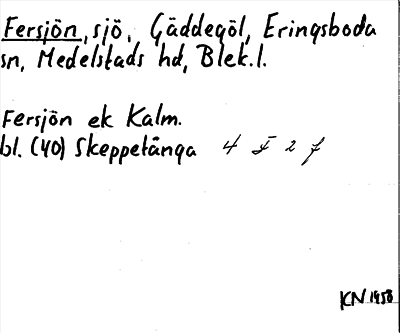 Fersjön, sjö, Gäddegöl, Eringsboda
sn, Medelstads hd, Blek.l.
Fersjön ek Kalm.
bl. (40) Skeppetånga 4 I 2 f
KN 1958